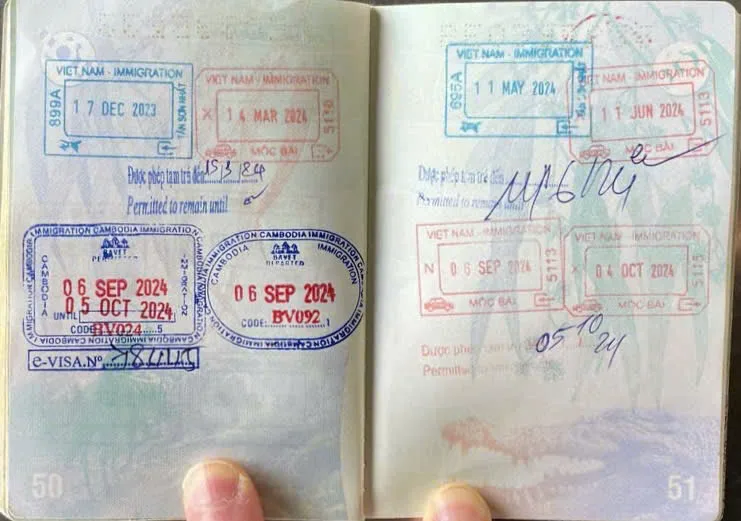 VIET NAM - IMMIGRATION
899A
17 DEC 2023
TÂN SƠN NHẤT
VIET NAM - IMMIGRATION
X
14 MAR 2024
MỘC BÀI
Được phép tạm trú đến
15/3/84
Permitted to remain until
IMMIGRATION CAMBODIA IMMIGRATION
CAMBODIA
BAVET
06 SEP 2024
05 OCT 2024
UNTIL
BV024
CODE: 5
e-VISA.Nº
IMMIGRATION CAMBODIA IMMIGRATION
CAMBODIA
IMMIGRATION
BAVET
DEPARTED
06 SEP 2024
BV092
CODE: 1
50
VIET NAM - IMMIGRATION
695A
11 MAY 2024
VIET NAM - IMMIGRATION
11 JUN 2024
5113
MỘC BÀI
Được phép tạm trú đến
Permitted to remain until
VIET NAM - IMMIGRATION
N
06 SEP 2024
5113
MỘC BÀI
VIET NAM - IMMIGRATION
X
04 OCT 2024
MỘC BÀI
Được phép
05 10 24
Permitted to
51